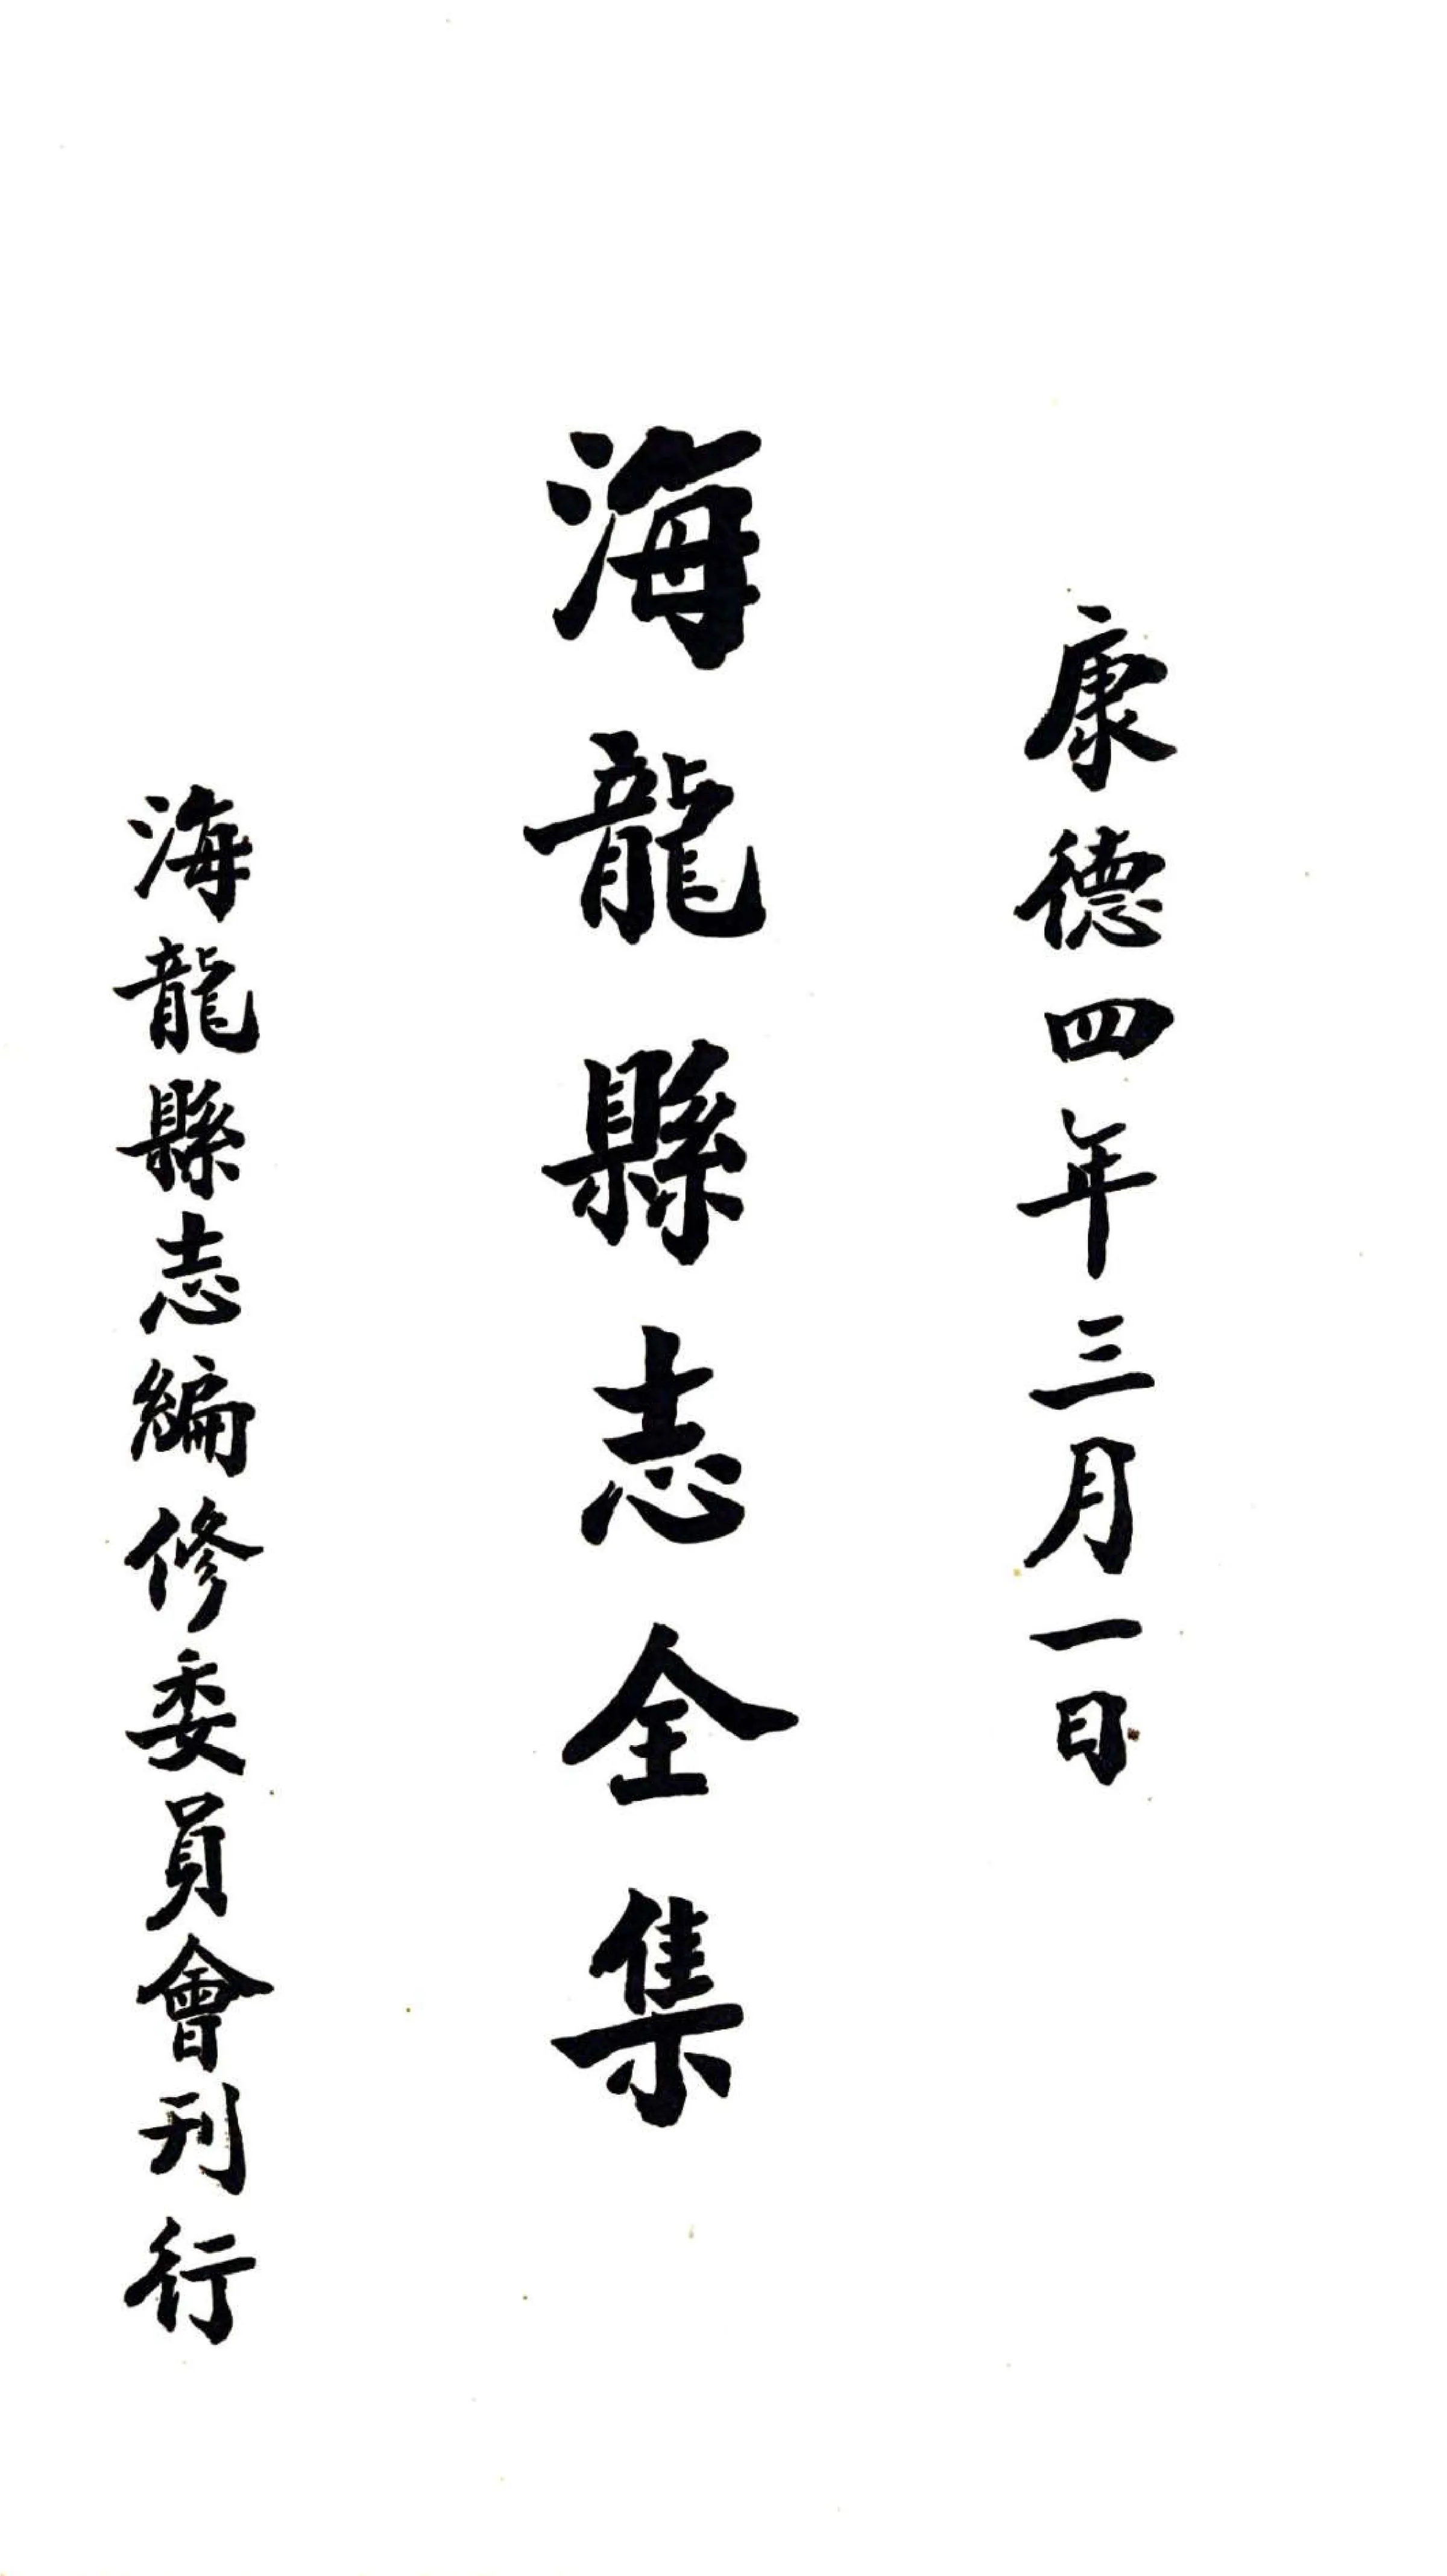 康德四年三月一日
海龍縣志全集
海龍縣志編修委員會刊行